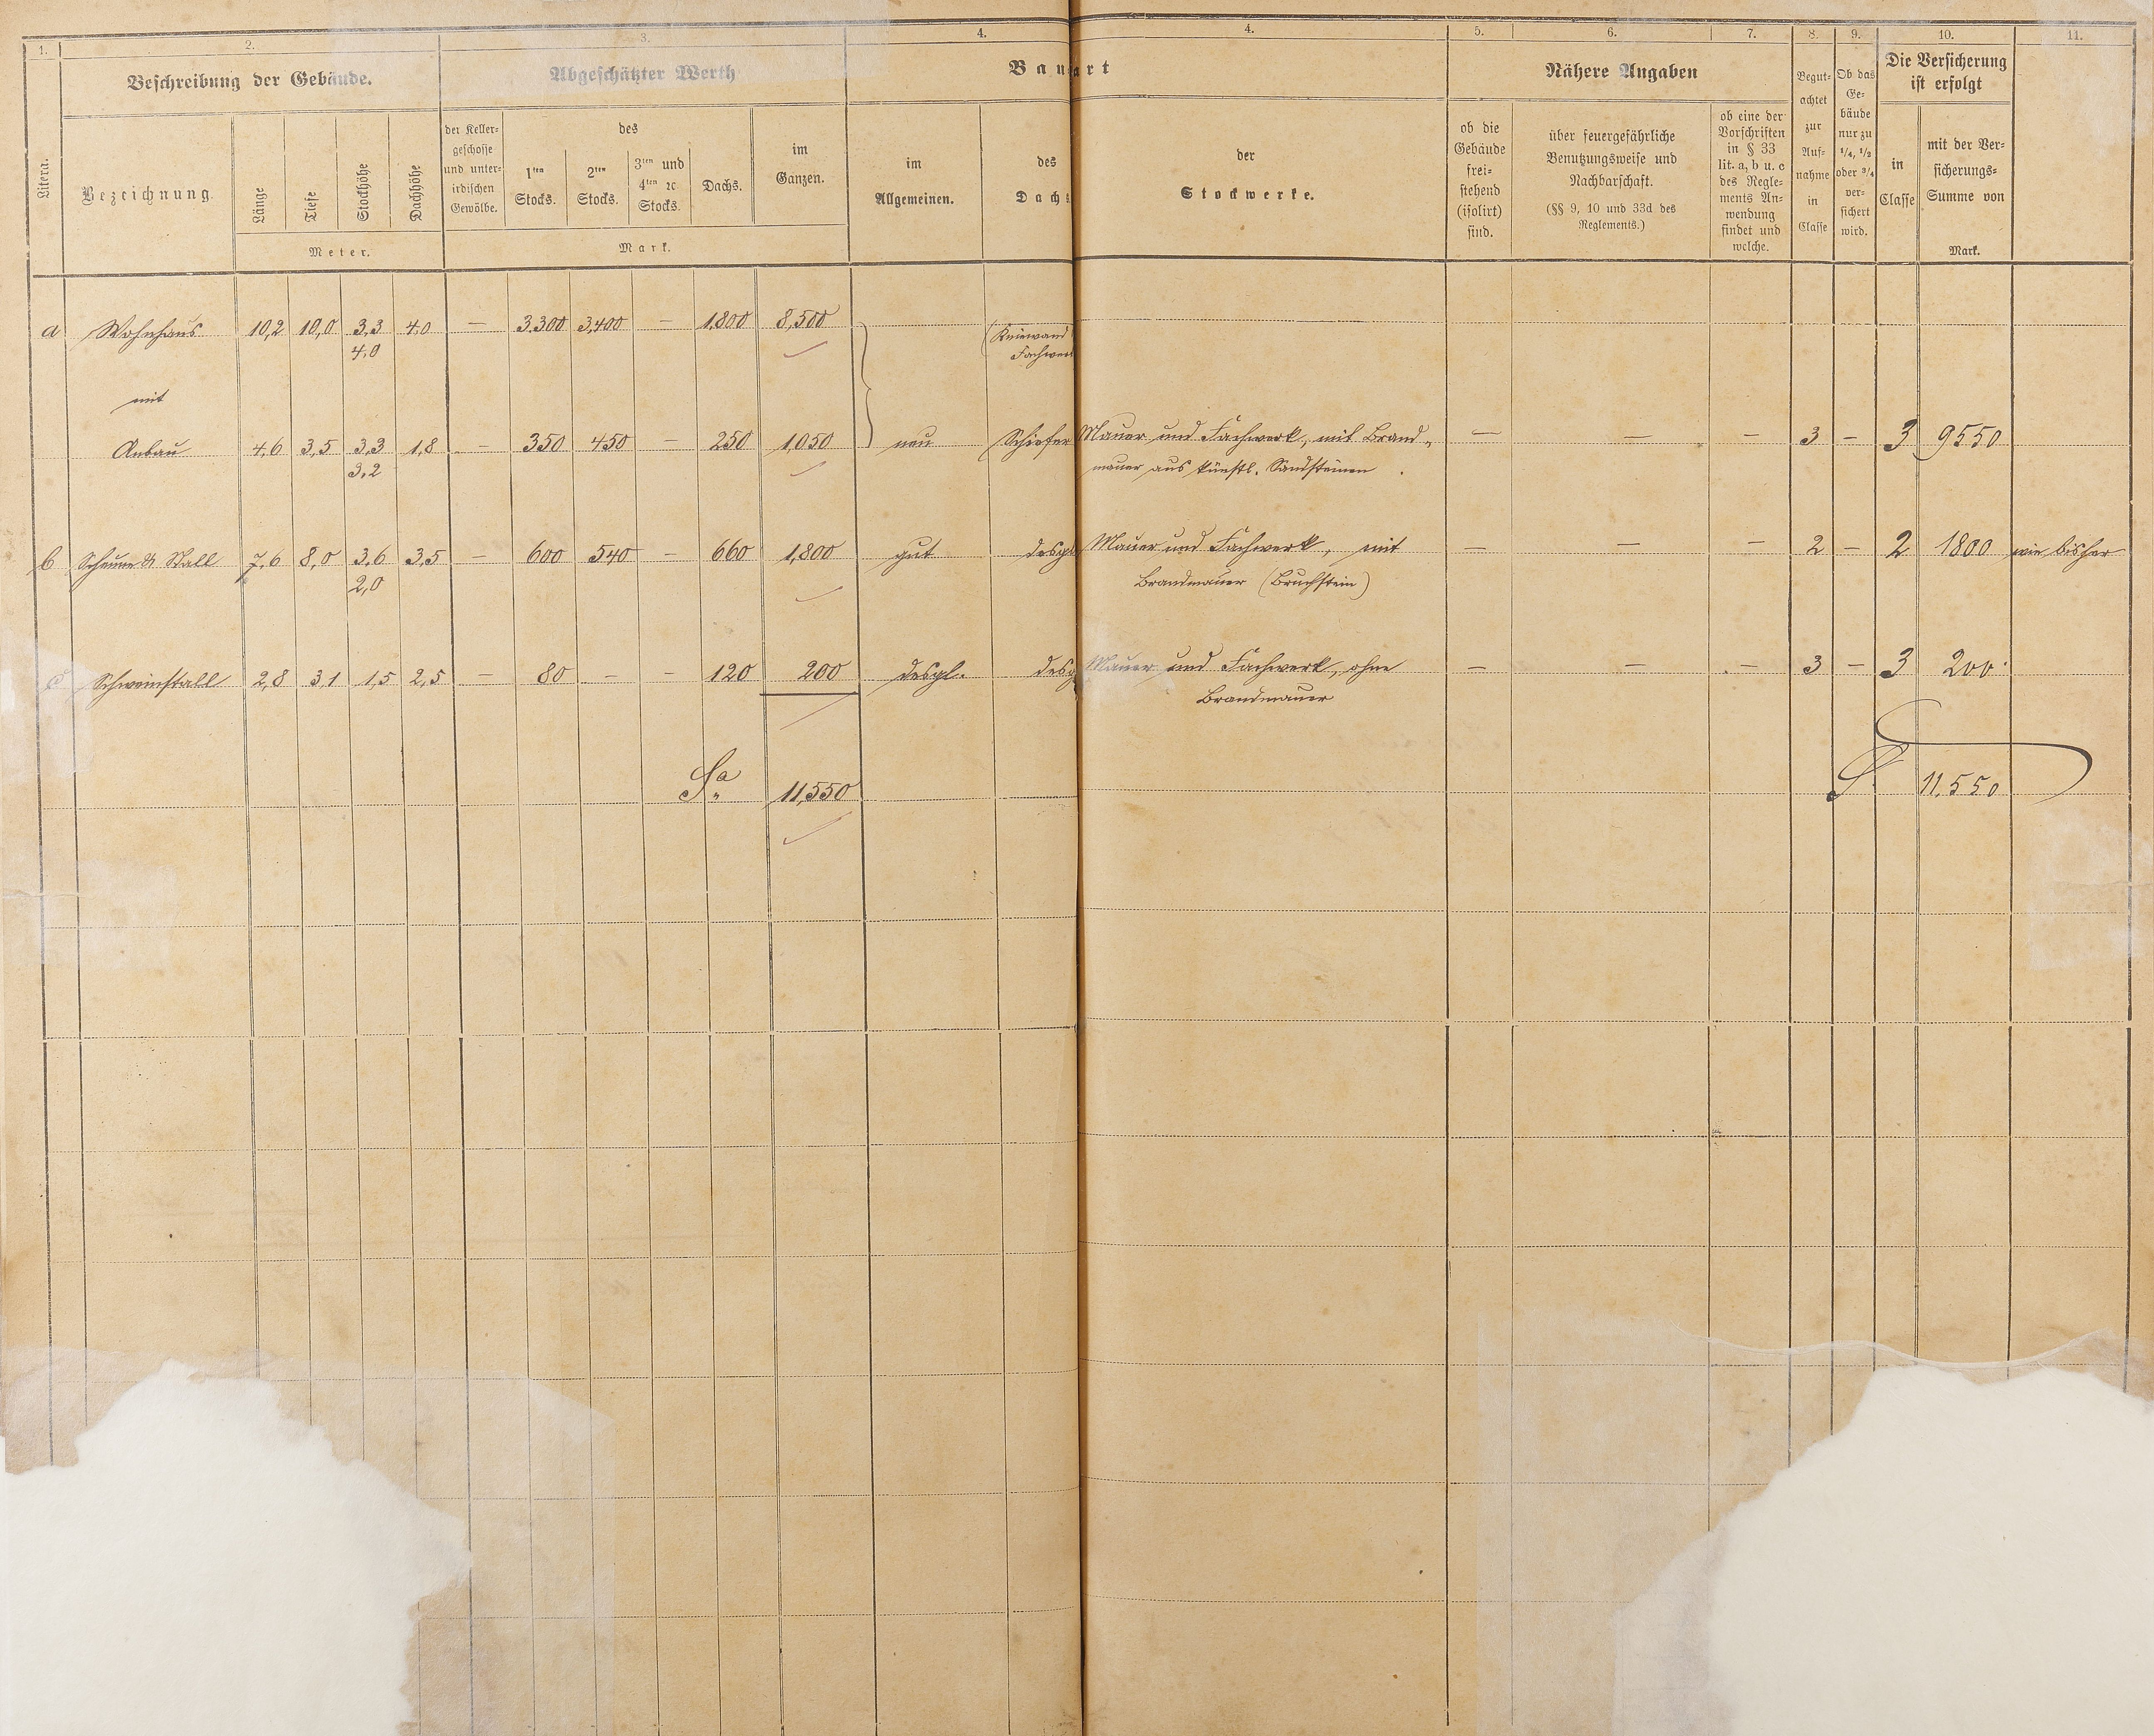 1. 2. 3. 4. 4. 5. 6. 7. 8. 9. 10. 11.
Litera.
Beschreibung der Gebäude.
Bezeichnung.
Länge
Tiefe
Stockhöhe
Dachhöhe
Meter.
Abgeschätzter Werth
der Keller=
geschosse
und unter=
irdischen
Gewölbe.
des
1ten
Stocks.
2ten
Stocks.
3ten und
4ten ꝛc
Stocks.
Dachs.
im
Ganzen.
Mark.
Bauart
im
Allgemeinen.
des
Dachs
der
Stockwerke.
Nähere Angaben
ob die
Gebäude
frei=
stehend
(isolirt)
sind.
über feuergefährliche
Benutzungsweise und
Nachbarschaft.
(§§ 9, 10 und 33d des
Reglements.)
ob eine der
Vorschriften
in § 33
lit. a, b u. c
des Regle=
ments An=
wendung
findet und
welche.
Begut=
achtet
zur
Auf=
nahme
in
Classe
Ob das
Ge=
bäude
nur zu
1/4, 1/2
oder 3/4
ver=
sichert
wird.
Die Versicherung
ist erfolgt
in
Classe
mit der Ver=
sicherungs=
Summe von
Mark.
a Wohnhaus 10,2 10,0 3,3 4,0 — 3,300 3,400 — 1,800 8,500
4,0
(Kniewand
Fachwerk
mit
Anbau 4,6 3,5 3,3 1,8 — 350 450 — 250 1,050 neu Schiefer Mauer und Fachwerk, mit Brand= — — — 3 — 3 9550
3,2 mauer aus künstl. Sandsteinen.
b Scheune & Stall 7,6 8,0 3,6 3,5 — 600 540 — 660 1,800 gut desgl Mauer und Fachwerk, mit — — — 2 — 2 1800 wie bisher
2,0 Brandmauer (Bruchstein)
c Schweinstall 2,8 3,1 1,5 2,5 — 80 — — 120 200 desgl. desg Mauer und Fachwerk, ohne — — — 3 — 3 200
Brandmauer
Sa. 11,550 S. 11,550